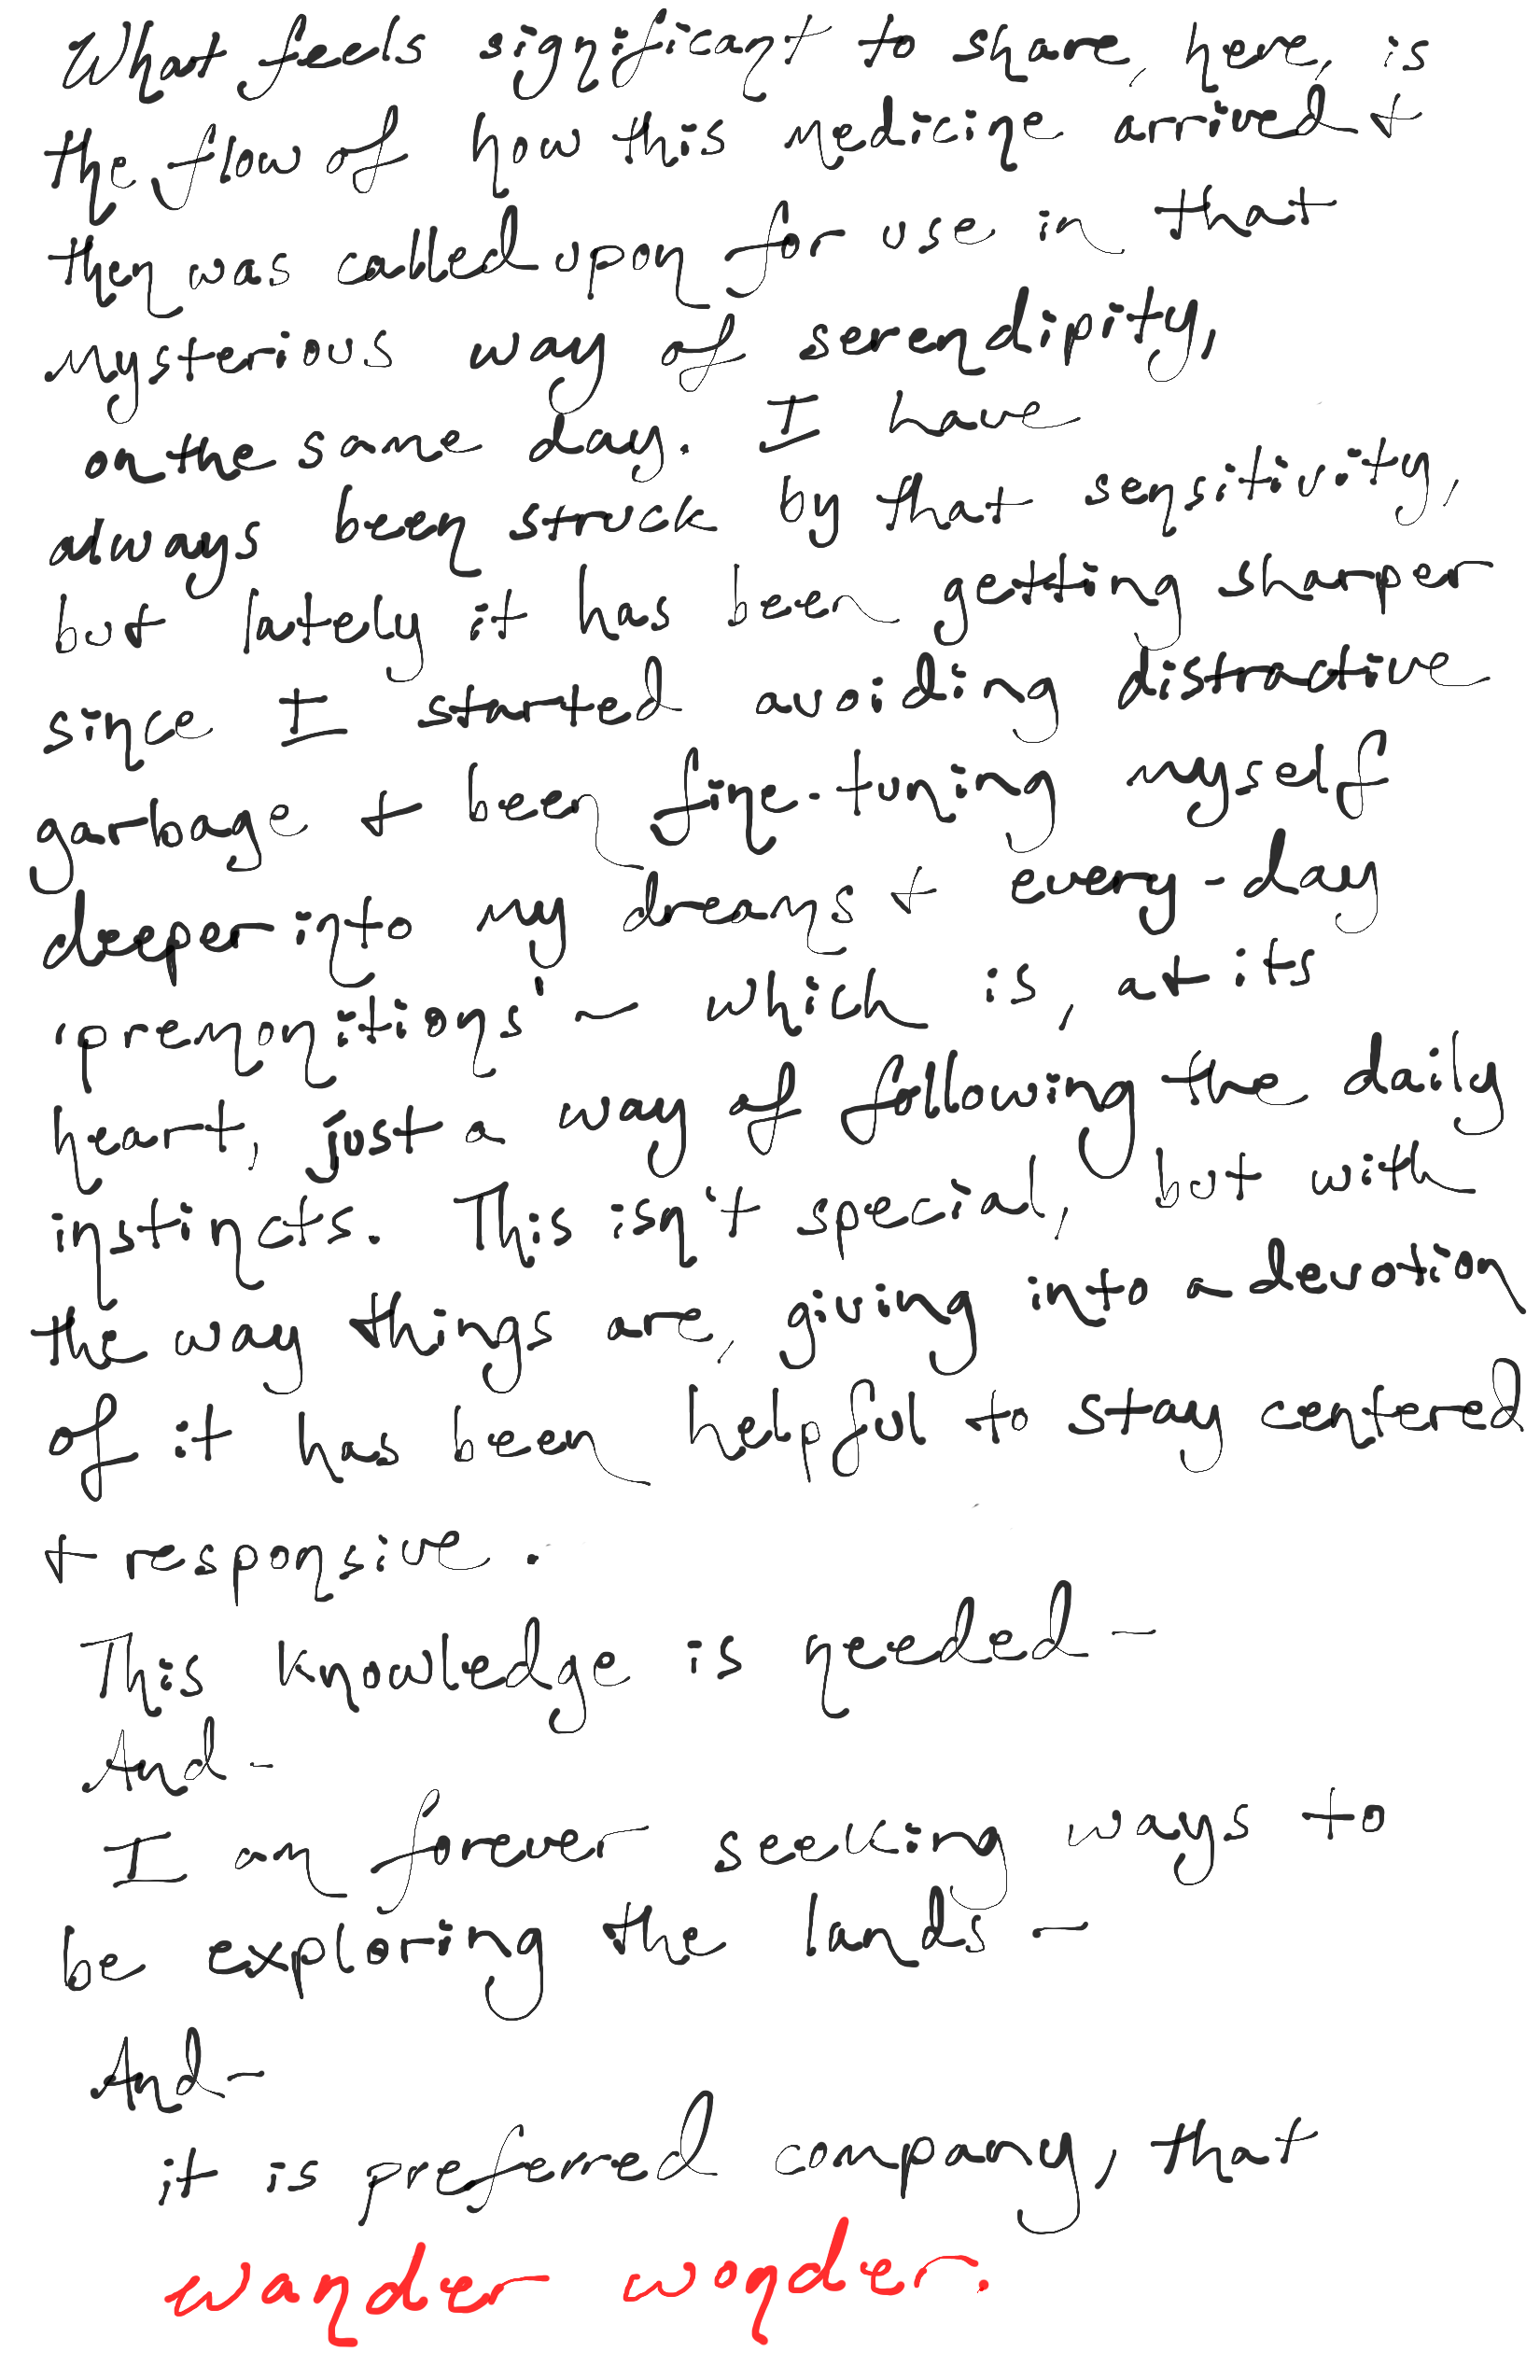 What feels significant to share, here, is
the flow of how this medicine arrived +
then was called upon for use in that
mysterious way of serendipity,
on the same day. I have
always been struck by that sensitivity,
but lately it has been getting sharper
since I started avoiding distractive
garbage + been fine-tuning myself
deeper into my dreams + every-day
'premonitions' - which is, at its
heart, just a way of following the daily
instincts. This isn't special, but with
the way things are, giving into a devotion
of it has been helpful to stay centered
+ responsive.
This knowledge is needed -
And -
I am forever seeking ways to
be exploring the lands -
And -
it is preferred company, that
wander wonder.